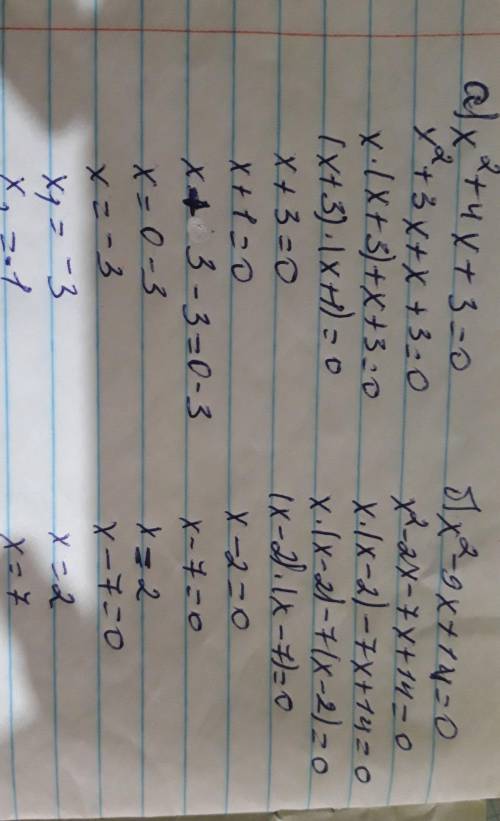 а) x² + 4x + 3 = 0
x² + 3x + x + 3 = 0
x · (x + 3) + x + 3 = 0
(x + 3) · (x + 1) = 0
x + 3 = 0
x + 1 = 0
x + 3 - 3 = 0 - 3
x = 0 - 3
x = -3
x₁ = -3
x₂ = -1
б) x² - 9x + 14 = 0
x² - 2x - 7x + 14 = 0
x · (x - 2) - 7x + 14 = 0
x · (x - 2) - 7(x - 2) = 0
(x - 2) · (x - 7) = 0
x - 2 = 0
x - 7 = 0
x = 2
x - 7 = 0
x = 2
x = 7